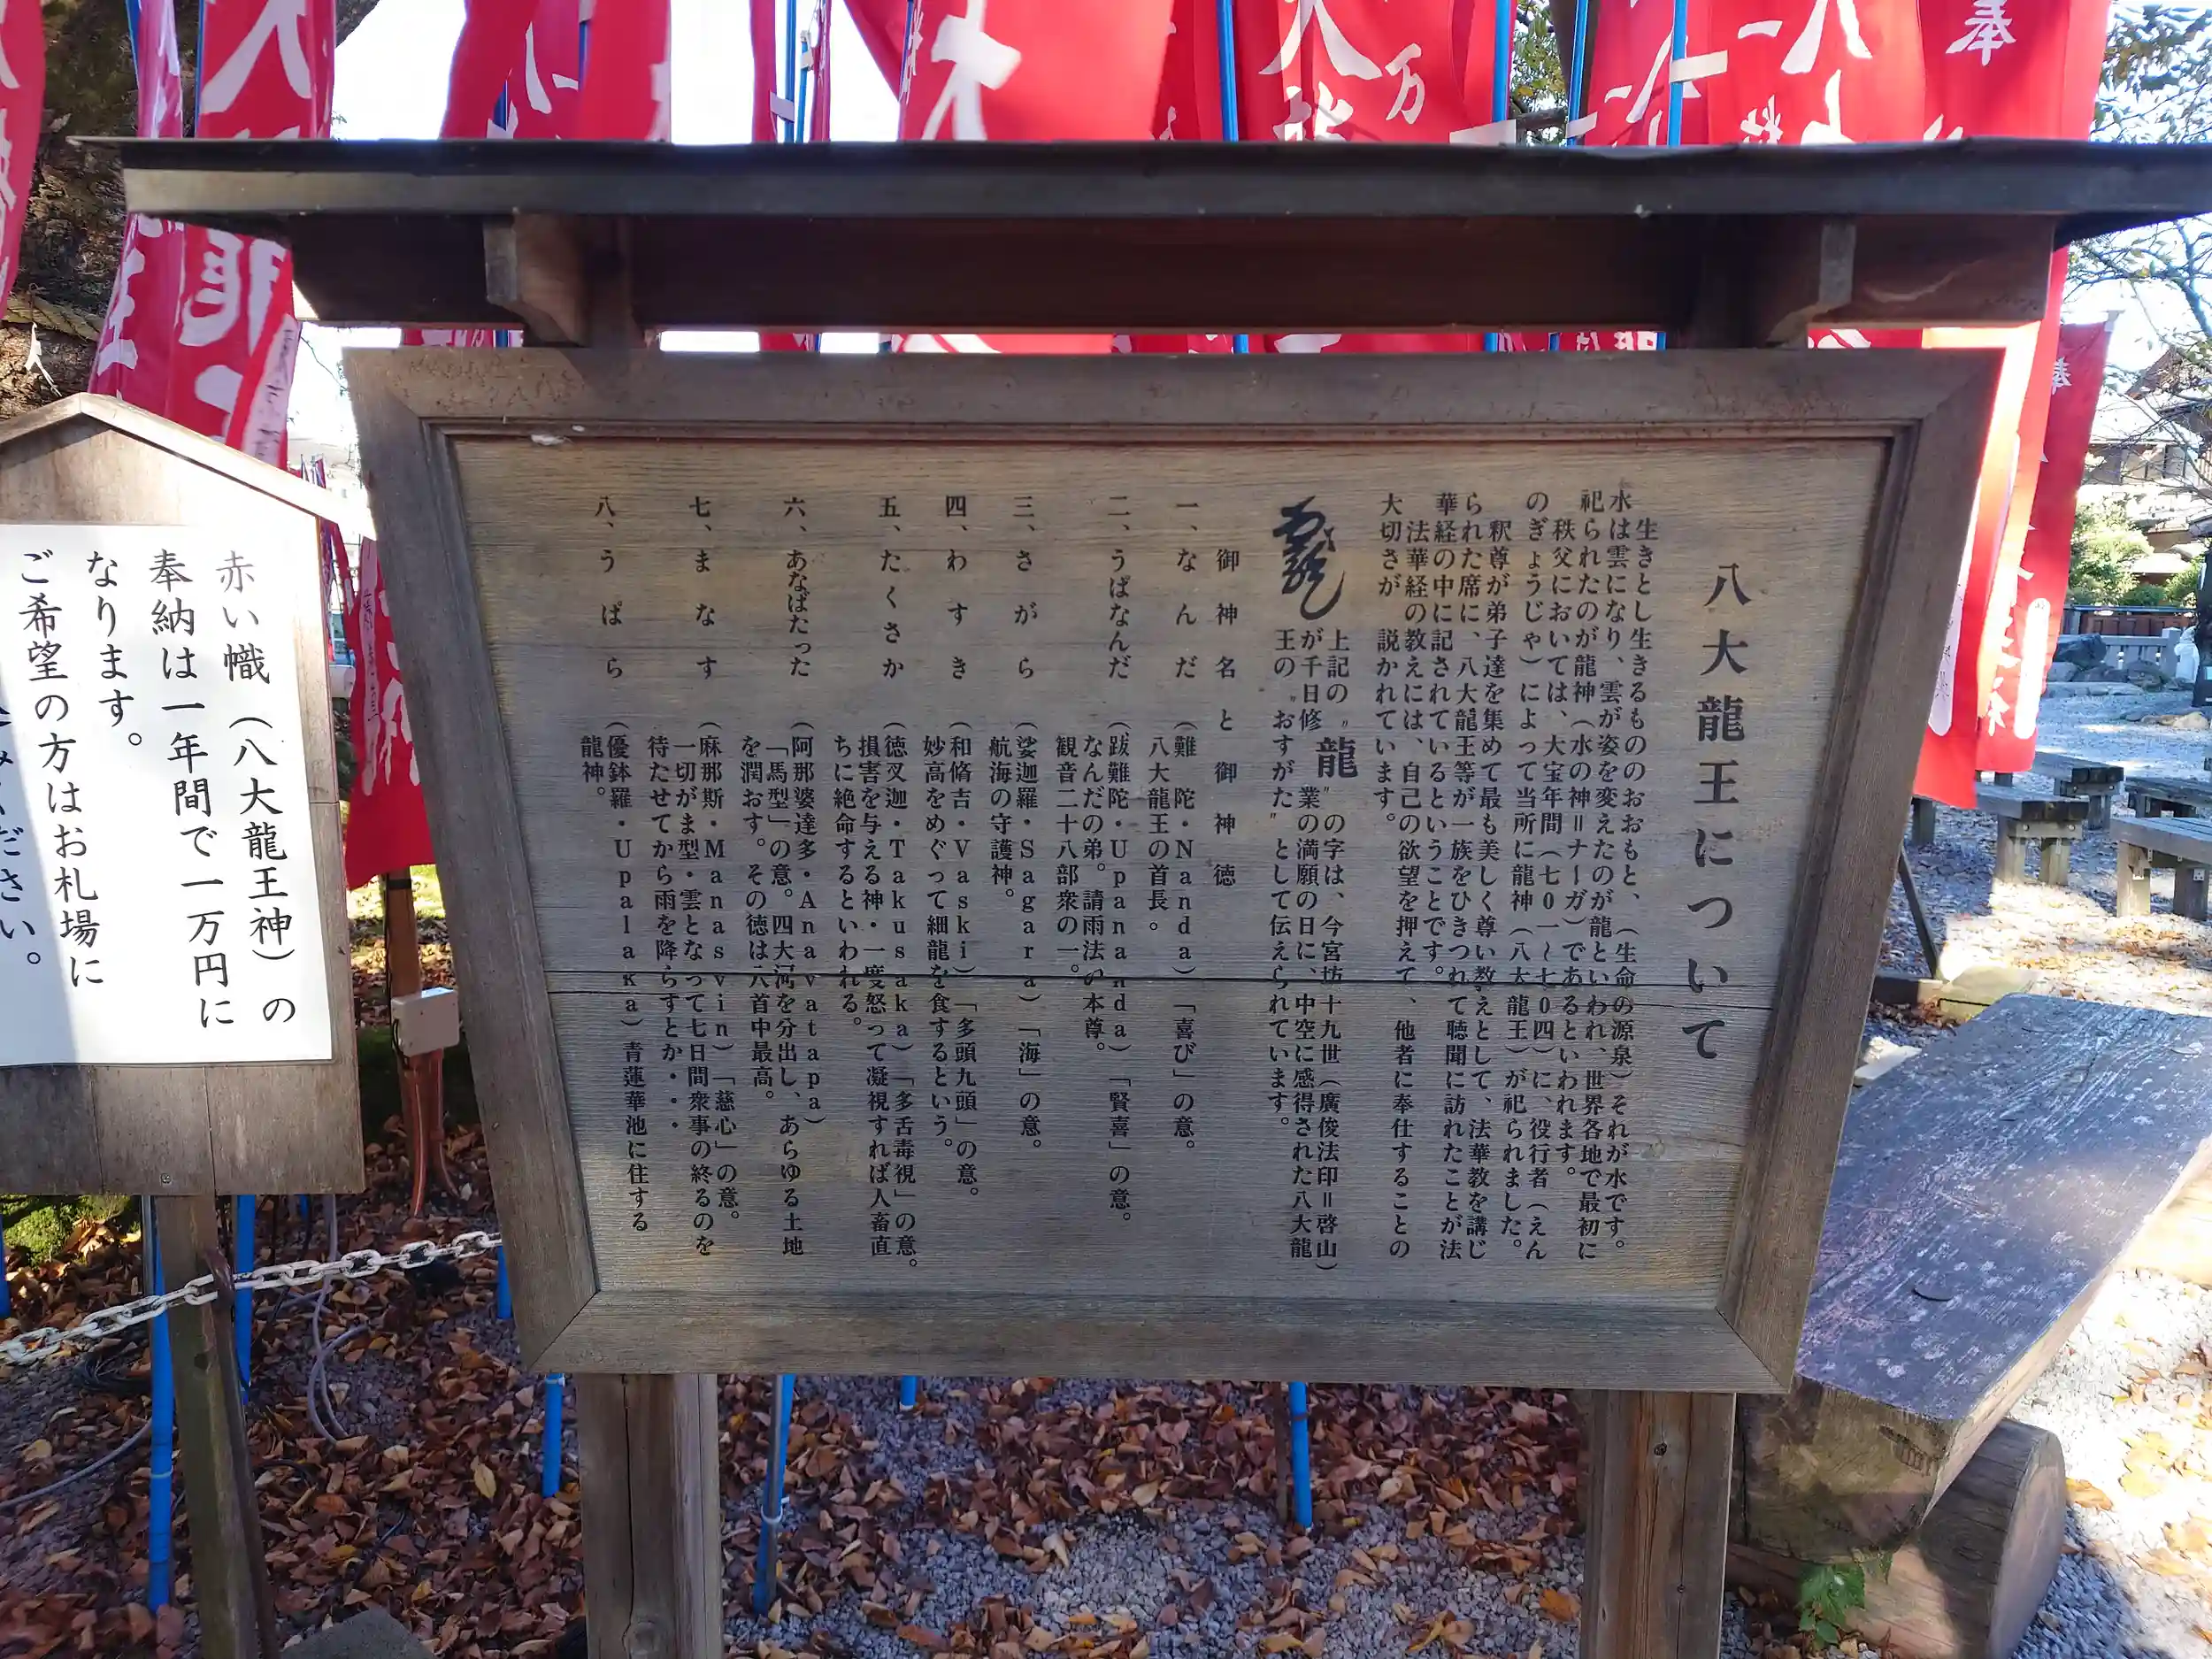 八大龍王について
生きとし生きるもののおおもと、（生命の源泉）それが水です。
水は雲になり、雲が姿を変えたのが龍といわれ、世界各地で最初に
祀られたのが龍神（水の神＝ナーガ）であるといわれます。
秩父においては、大宝年間（七〇一〜七〇四）に、役行者（えん
のぎょうじゃ）によって当所に龍神（八大龍王）が祀られました。
釈尊が弟子達を集めて最も美しく尊い教えとして、法華教を講じ
られた席に、八大龍王等が一族をひきつれて聴聞に訪れたことが法
華経の中に記されているということです。
法華経の教えには、自己の欲望を押えて、他者に奉仕することの
大切さが説かれています。
上記の〝龍〟の字は、今宮坊十九世（廣俊法印＝啓山）
が千日修業の満願の日に、中空に感得された八大龍
王の〝おすがた〟として伝えられています。
御神名と御神徳
一、なんだ（難陀・Nanda）「喜び」の意。
八大龍王の首長。
二、うばなんだ（跋難陀・Upananda）「賢喜」の意。
なんだの弟。請雨法の本尊。
観音二十八部衆の一。
三、さがら（娑迦羅・Sagara）「海」の意。
航海の守護神。
四、わすき（和脩吉・Vaski）「多頭九頭」の意。
妙高をめぐって細龍を食するという。
五、たくさか（徳叉迦・Takusaka）「多舌毒視」の意。
損害を与える神・一度怒って凝視すれば人畜直
ちに絶命するといわれる。
六、あなばたった（阿那婆達多・Anavatapa）
「馬型」の意。四大河を分出し、あらゆる土地
を潤おす。その徳は八首中最高。
七、まなす（麻那斯・Manasvin）「慈心」の意。
一切がま型・雲となって七日間衆事の終るのを
待たせてから雨を降らすとか・・・
八、うぱら（優鉢羅・Upalaka）青蓮華池に住する
龍神。
赤い幟（八大龍王神）の
奉納は一年間で一万円に
なります。
ご希望の方はお札場に
ください。